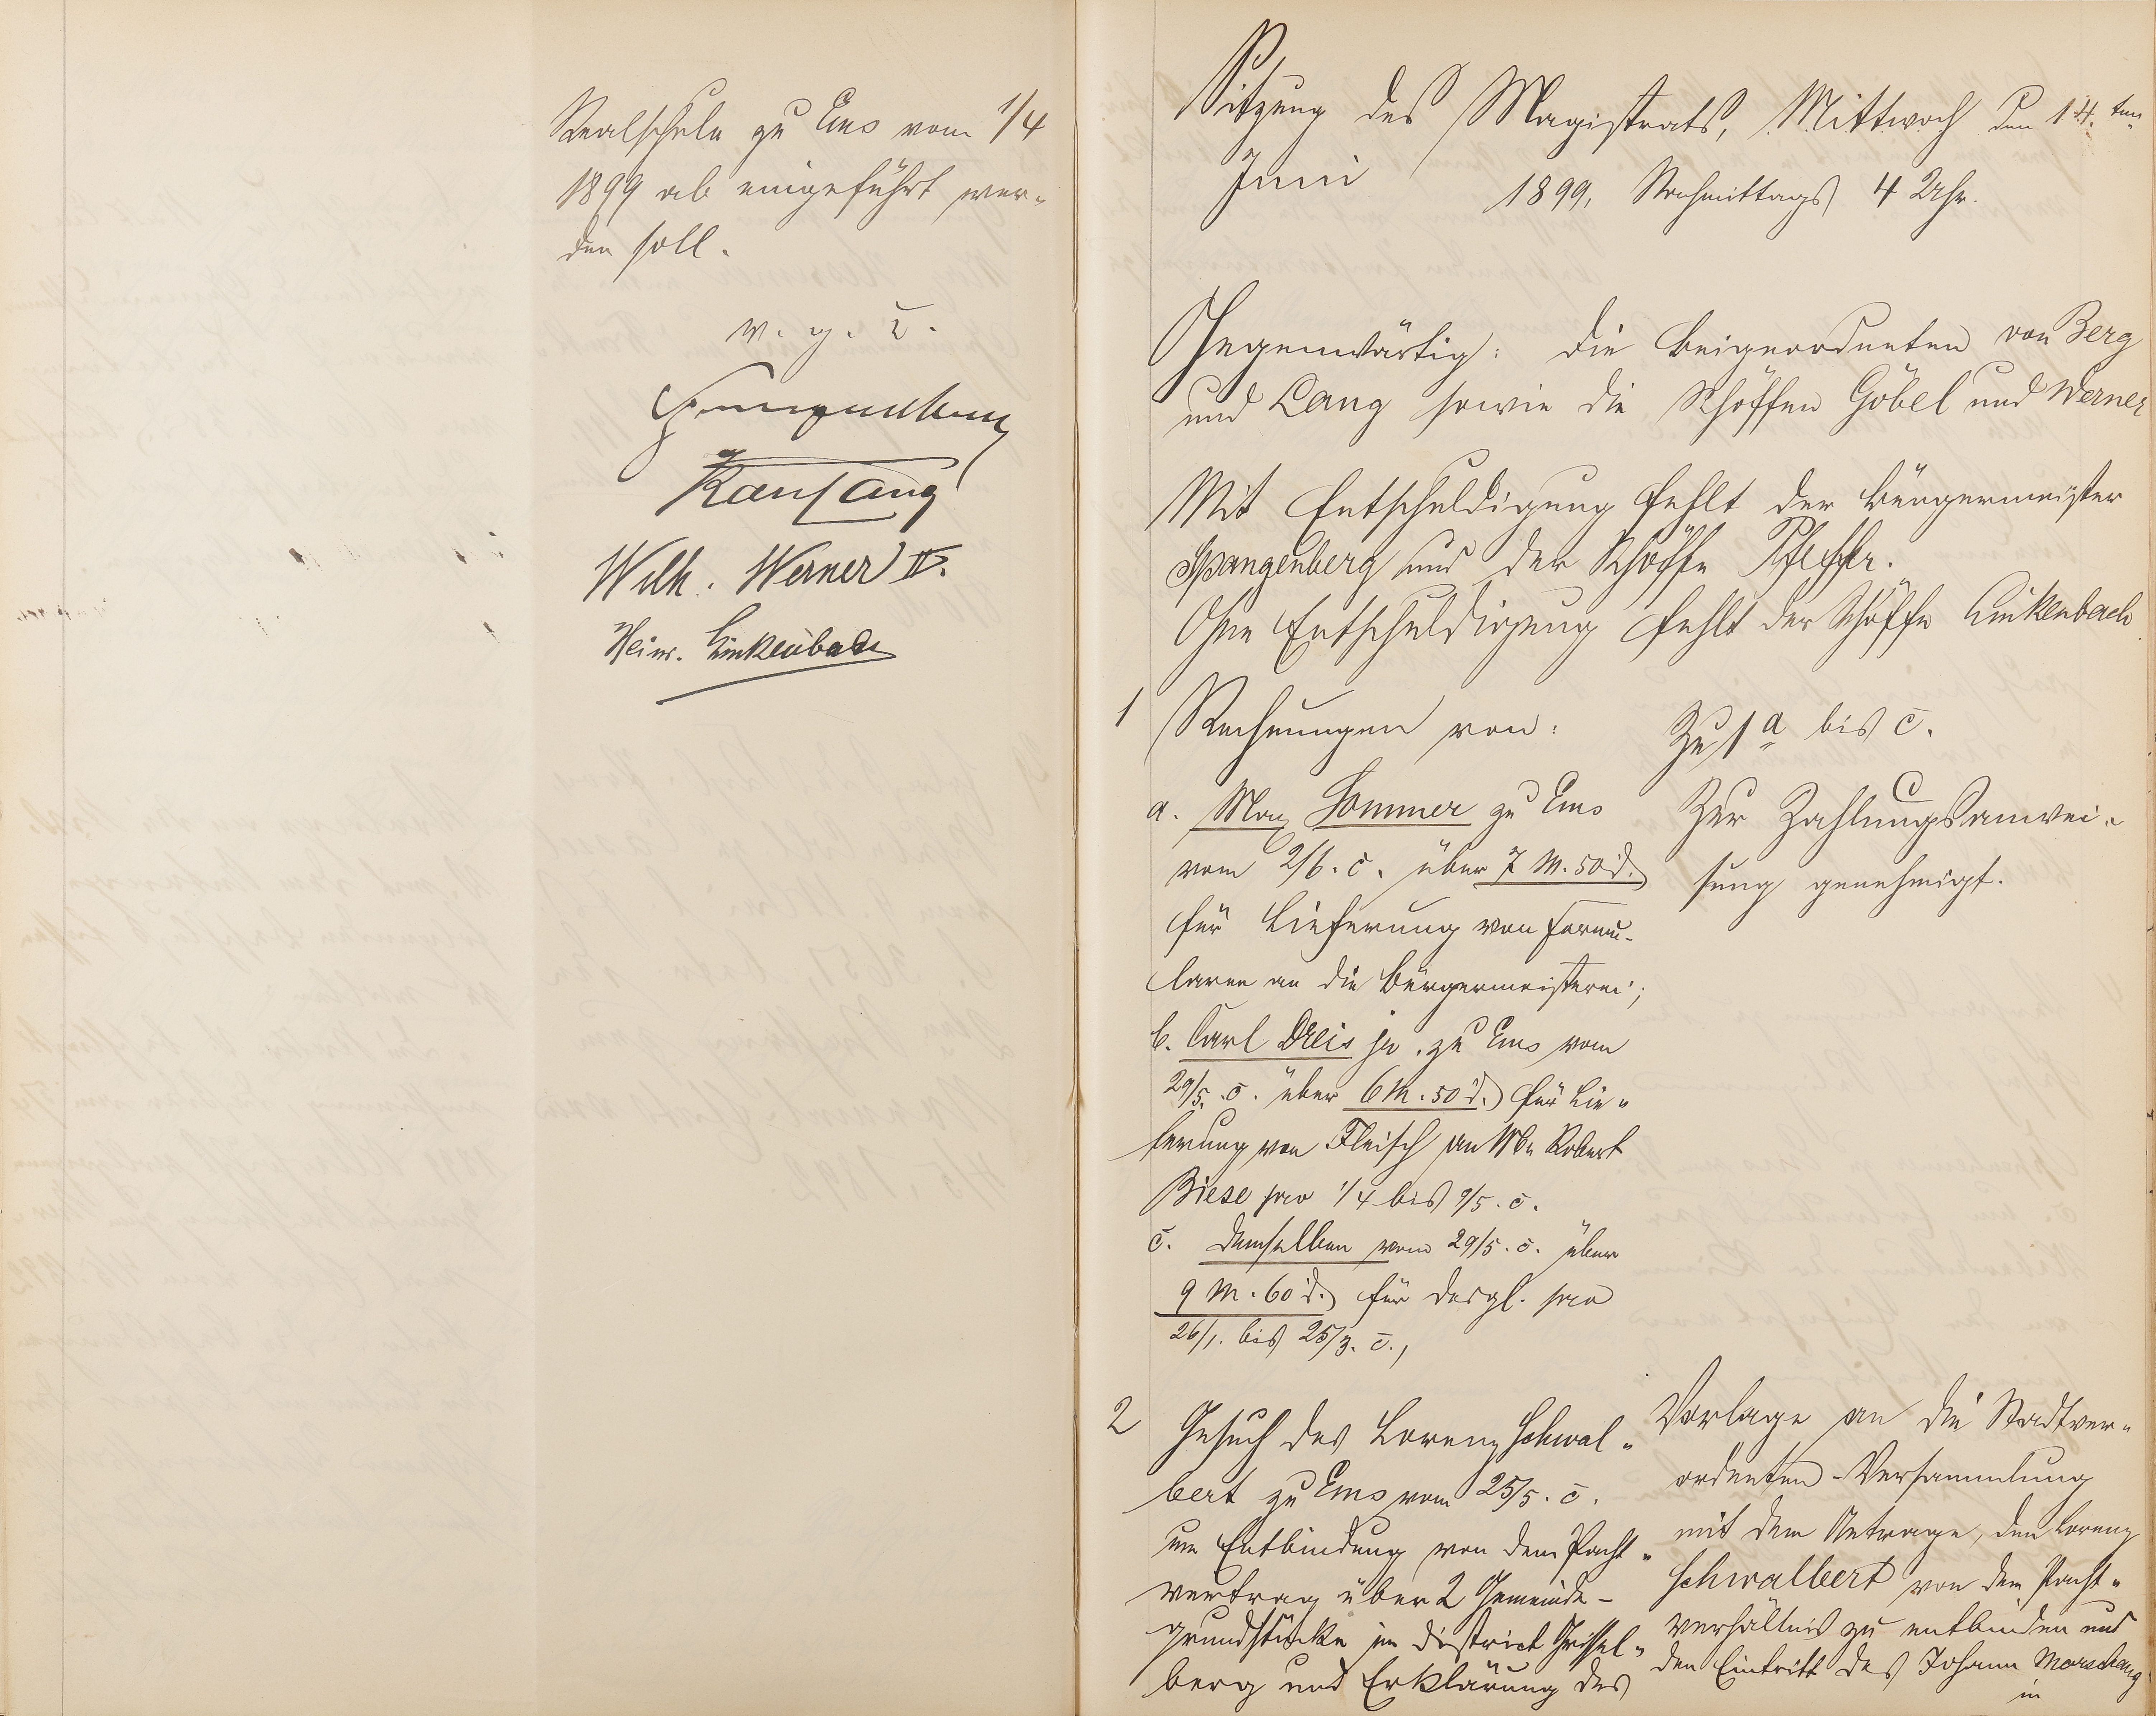 Realschule zu Ems vom 1/4
1899 ab eingeführt wer-
den soll.
v. g. u.
Spangenberg
Karl Lang
Wilh. Werner IV.
Heinr. Linkenbach
Sitzung des Magistrats, Mittwoch den 14.ten
Juni 1899, Nachmittags 4 Uhr.
Gegenwärtig: die Beigeordneten von Berg
und Lang sowie die Schöffen Göbel und Werner
Mit Entschuldigung fehlt der Bürgermeister
Spangenberg und der Schöffe Pfeffer.
Ohne Entschuldigung fehlt der Schöffe Linkenbach
1 Rechnungen von:
a. Max Sommer zu Ems
vom 2/6. c. über 7 M. 50 d.
für Lieferung von Formu-
laren an die Bürgermeisterei;
b. Carl Dreis jr. zu Ems vom
29/5. c. über 6 M. 50 d. für Lie-
ferung von Fleisch an Robert
Biese pro 1/4 bis 9/5. c.
c. demselben vom 29/5. c. über
9 M. 60 d. für desgl. pro
26/1. bis 25/3. c.,
Zu 1 a bis c.
Zur Zahlungsanwei-
sung genehmigt.
2 Gesuch des Lorenz Schwal-
bert zu Ems vom 25/5. c.
um Entbindung von dem Pacht-
vertrag über 2 Gemeinde-
grundstücke im District
berg und Erklärung des
Vorlage an die Stadtver-
ordneten-Versammlung
mit dem Antrage, den Lorenz
Schwalbert von dem Pacht-
verhältnis zu entbinden und
den Eintritt des Johann Morschang
in